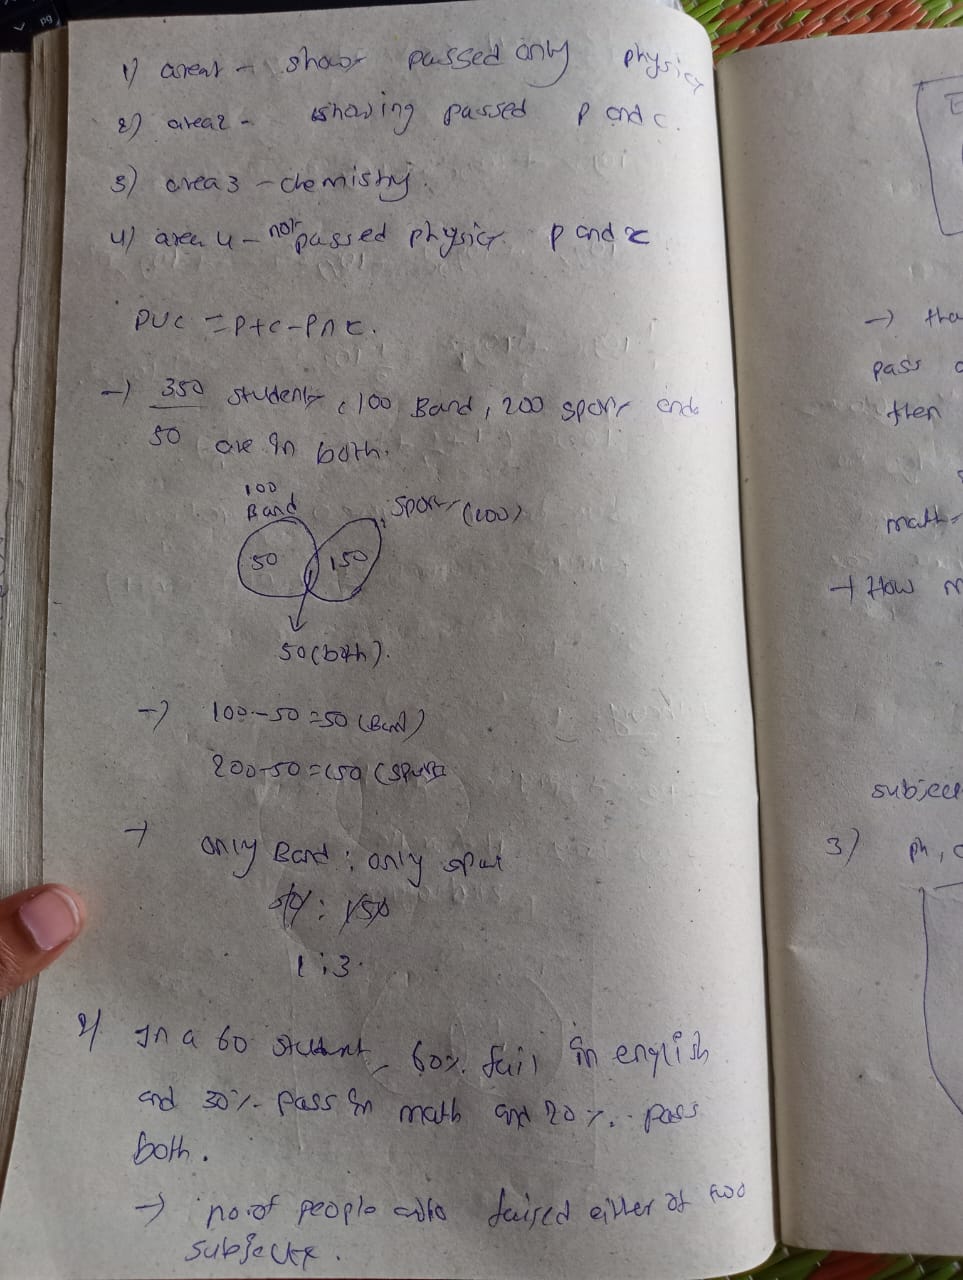 pg
1) area1 - shows passed only physics
2) area2 - showing passed P and C.
3) area 3 - chemistry.
4) area 4 - not passed physics P and C
PUC = P+C-P∩C.
→ 350 students, 100 Band, 200 sports and
50 are in both.
100
Band
Sports (200)
50
150
50 (both).
→ 100-50=50 (Band)
200-50=150 (sports
→ only Band : only sport
50 : 150
1 : 3.
2) In a 60 student, 60% fail in english
and 30% pass in math and 20% pass
both.
→ no.of people who failed either of two
subjects.
→
pass
then
math-
→ How
3) ph,